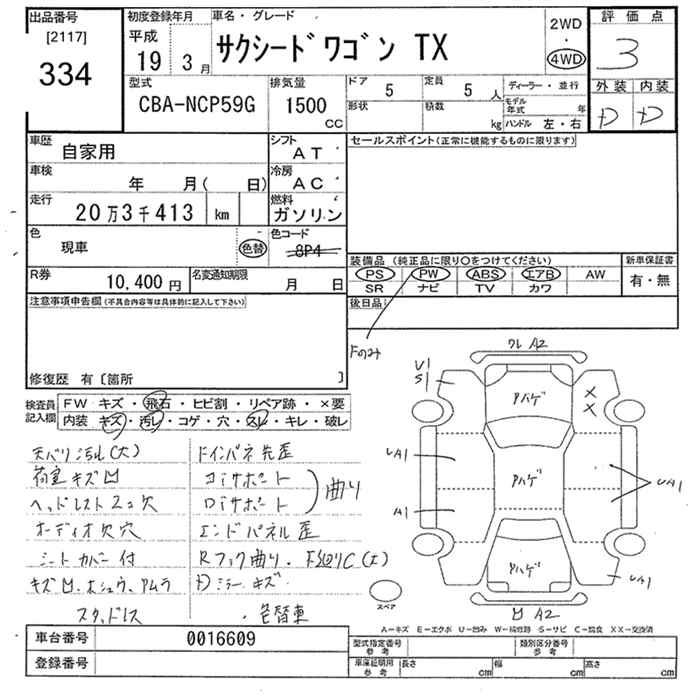 出品番号 初度登録年月 車名・グレード 2WD 評価点
[2117] 平成 サクシードワゴン TX ・ 3
334 19 3月 4WD 外装 内装
型式 排気量 ドア 定員 ディーラー・並行
CBA-NCP59G 1500 5 5 人 モデル年式 年
CC 形状 積数 kg ハンドル 左・右 D D
車歴 シフト セールスポイント(正常に機能するものに限ります)
自家用 AT
車検 冷房
年 月( 日) AC
走行 燃料
20万3千413 km ガソリン
色 色コード
現車 色替 8P4
装備品 (純正品に限り○をつけてください) 新車保証書
R券 名変通知期限 PS PW ABS エアB AW 有・無
10,400円 月 日 SR ナビ TV カワ
注意事項申告欄(不具合内容等は具体的に記入して下さい) 後日品
Fのみ
修復歴 有〔箇所 〕
検査員記入欄 FW キズ・飛石・ヒビ割・リペア跡・×要
内装 キズ・汚レ・コゲ・穴・スレ・キレ・破レ
ワレ A2
U1
S1
Aハゲ
× ×
UA1
Aハゲ
UA1
A1
Aハゲ
UA1
凹 A2
スペア
天バリ汚れ(大) ドインパネ先歪
荷室キズ凹 コアサポート
ヘッドレスト2コ欠 ロアサポート 曲り
オーディオ欠穴 エンドパネル歪
シートカバー付 Rフック曲り・下廻りC(大)
キズ凹、ホシュウ、Aムラ Dミラーキズ
スタッドレス ・色替車
A-キズ E-エクボ U-凹み W-補修跡 S-サビ C-腐食 XX-交換済
車台番号 0016609 型式指定番号参考 類別区分番号参考
登録番号 車庫証明用参考 長さ cm 幅 cm 高さ cm